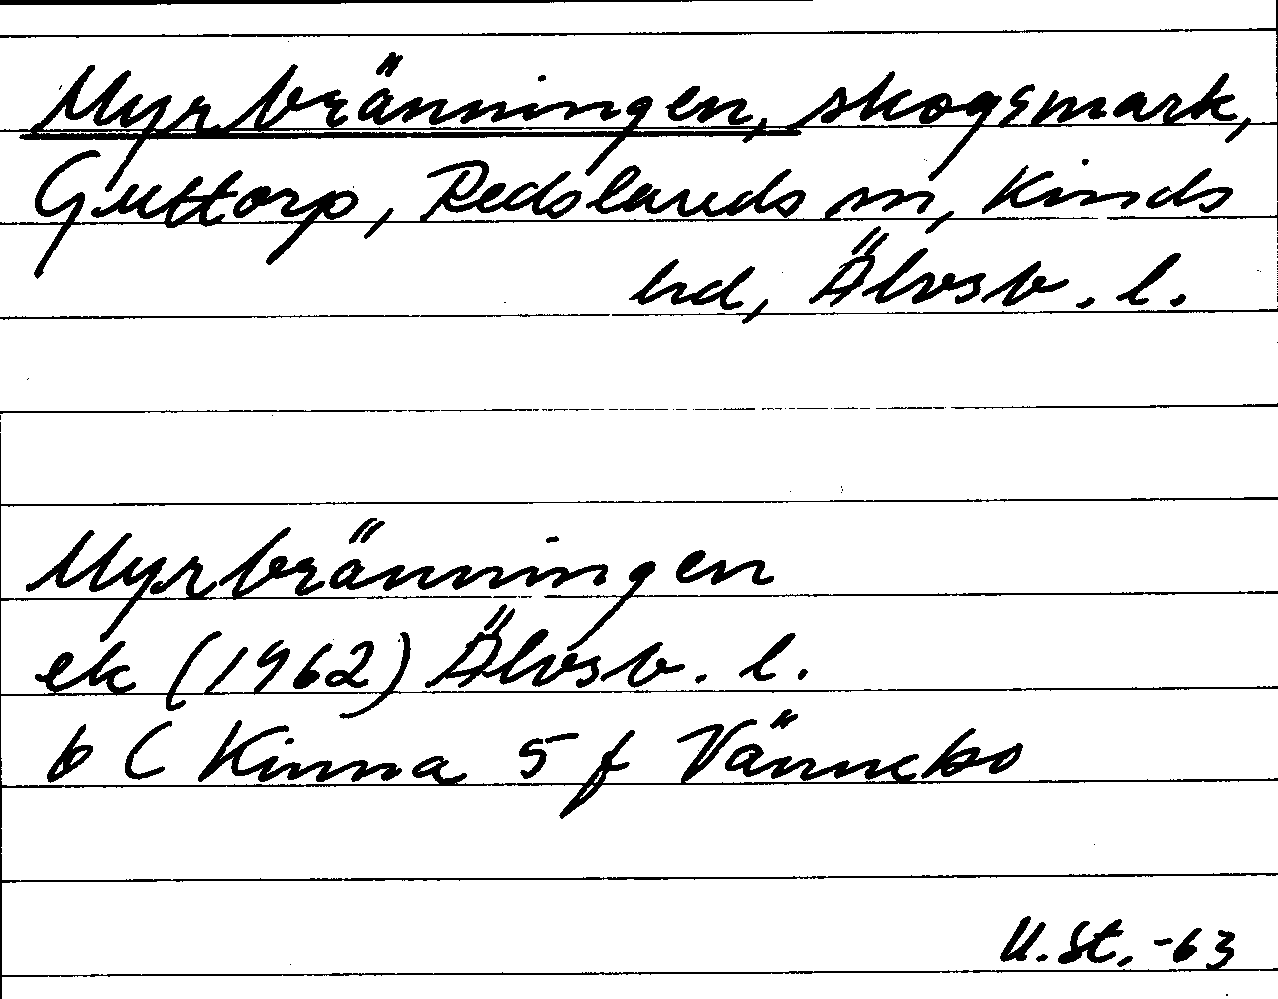 Myrbränningen, skogsmark,
Guttorp, Redslareds sn, Kinds
hd, Älvsb. l.
Myrbränningen
ek (1962) Älvsb. l.
6 C Kinna 5 f Vännebo
U.St. -63